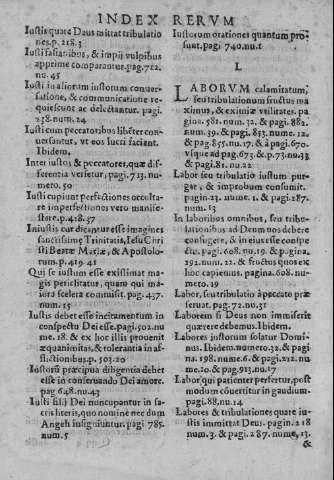 INDEX RERVM
Iustis quare Deus mittat tribulatio
nes.p.218.3
Iusti fasianibus, & impij vulpibus
apprime comparantur.pag.712.
nu.45
Iusti in aliorum iustorum conuer-
satione, & communicatione re
quiescunt ac delectantur. pagi.
238.num.24
Iusti cum peccatoribus libẽter con-
uersantur, vt eos lucri faciant.
Ibidem.
Inter iustos & peccatores, quæ dif-
ferentia versetur, pagi.713.nu-
mero.50
Iusti cupiunt perfectiones occulta-
re imperfectiones vero manife-
stare.p.418.37
Iniustis cur dicantur esse imagines
sanctissimę Trinitatis, Iesu Chri
sti Beatæ Mariæ, & Apostolo-
rum.p.419 41
Qui se iustum esse existimat mag-
nis periclitatur, quam qui ma-
iora scelera commisit. pag.437.
num.55
Iustis debet esse incitamentum in
conspectu Dei esse.pagi.502.nu
me.18. & ex hoc illis prouenit
æquanimitas, & tolerantia in af-
flictionibus.p.503.20
Iustorū præcipua diligentia debet
esse in conseruando Dei amore.
pag 648.nu.43
Iusti filij Dei nuncupantur in sa-
cris literis, quo nomine nec dum
Angeli insigniuntur. pagi 785.
num.5
Iustorum orationes quantum pro-
sunt.pagi 740.nu.1
L
LABORVM calamitatum,
seu tribulationum fructus ma
ximus, & eximiæ vtilitates. pa
gina.581.num.32. & pagi.882.
num.39. & pagi, 833. nume.12.
& pag 855.nu.17. & à pagi.670.
vsque ad pag.673. & p.73.nu.33.
& pagi.81.nu.22
Labor seu tribulatio iustum pur-
gat, & improbum consumit.
pagi.23.nume.1. & pagi.287.
num.13
In laboribus omnibus, seu tribu-
lationibus ad Deum nos debere
confugere, & in eius esse conspe
ctu. pagi.608. nu.19. & pagina.
292.num.21. & fructus quos ex
hoc capiemus. pagina.608.nu-
mero.19
Labor, seu tribulatio à peccato præ
seruat. pag.72.nu.31
Laborem si Deus non immiserit
quærere debemus.Ibidem.
Labores iustorum solatur Domi-
nus. Ibidem.numero.32.& pagi
na.198. nume.6. & pagi.212. nu
me.20.& pag.913.nu.17
Labor qui patienter perfertur, post
modum cõuertitur in gaudium-
pagi.88.nu.14
Labores & tribulationes quare iu-
stis immittat Deus. pagin.218
num.3. & pagi.287. nume,13.
&